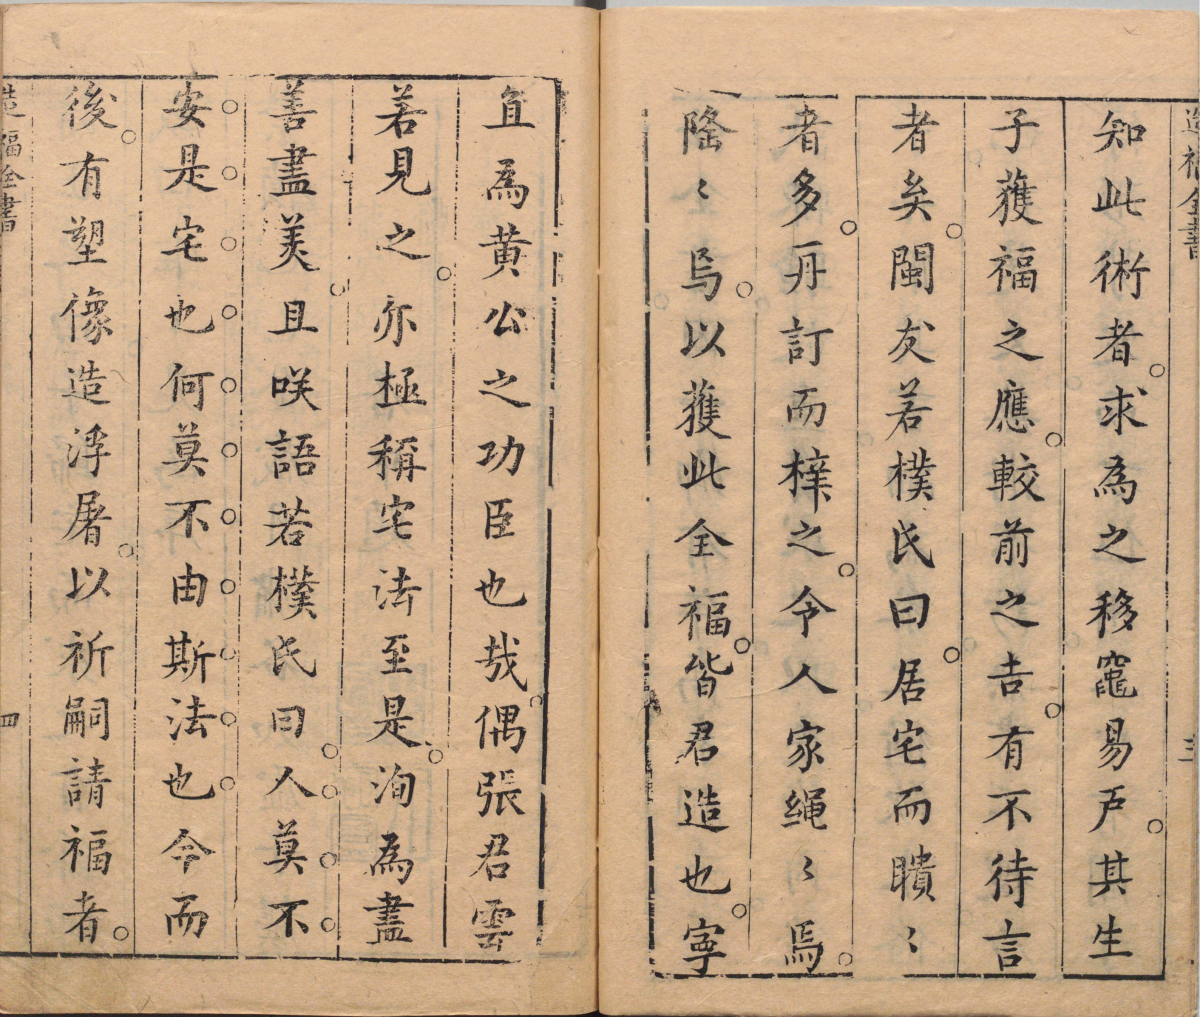 造福全書 三
知此術者求為之移竈易戶其生
子獲福之應較前之吉有不待言
者矣閩友若樸氏曰居宅而瞶〻
者多再訂而梓之令人家繩〻焉
隆〻焉以獲此全福皆君造也寧
直為黃公之功臣也哉偶張君雲
若見之亦極稱宅法至是洵為盡
善盡美且咲語若樸氏曰人莫不
安是宅也何莫不由斯法也今而
後有塑像造浮屠以祈嗣請福者
造福全書 四